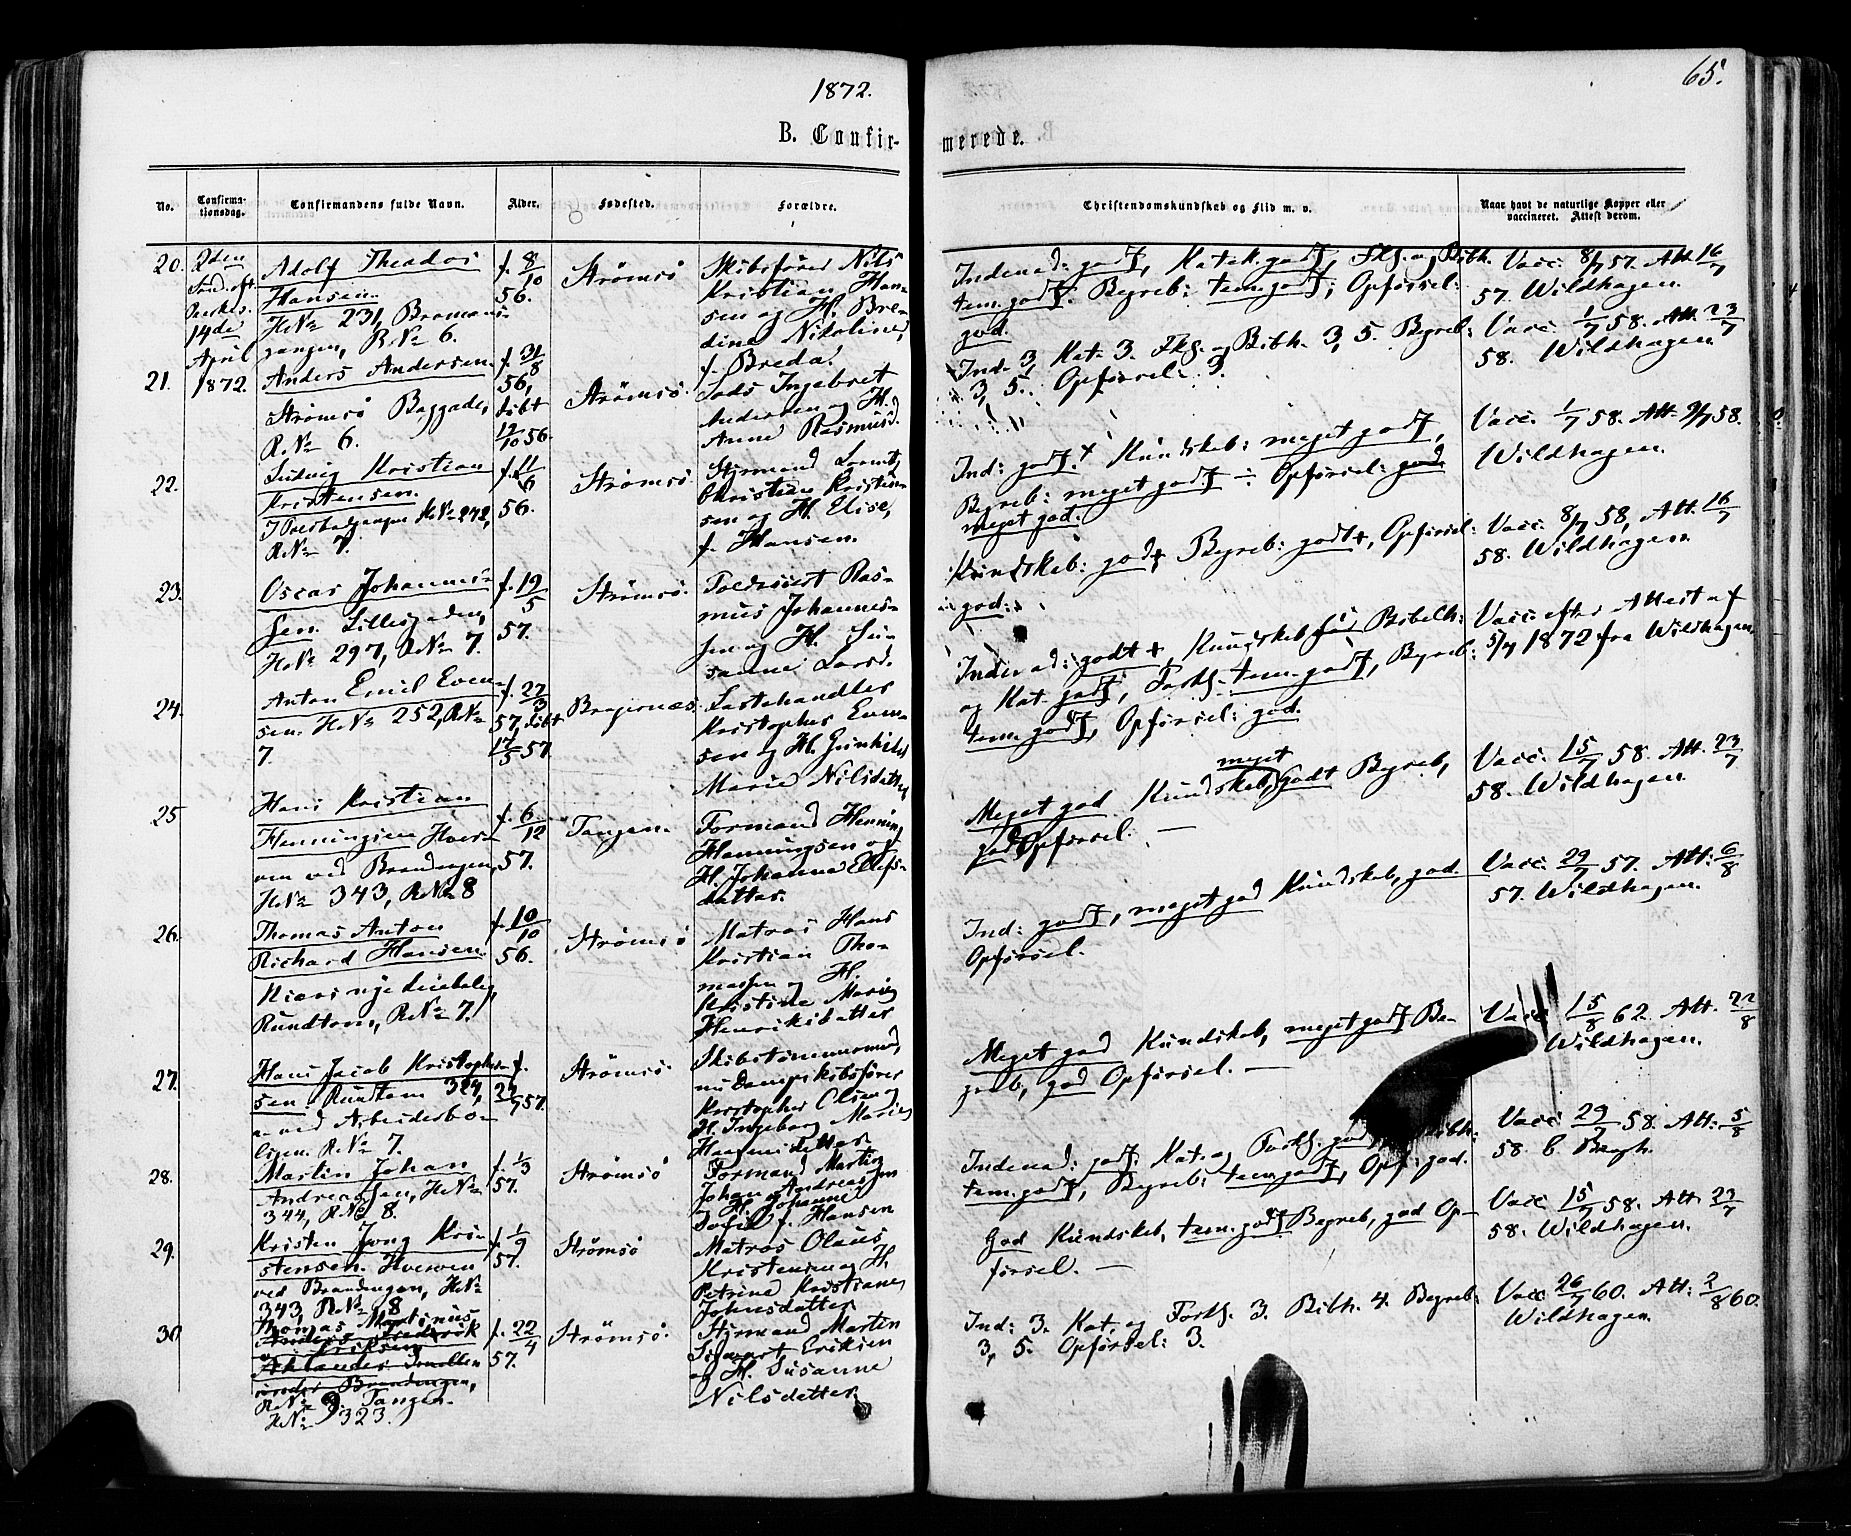 1872.
65.
B. Confir-
merede.
No.
Confirma-
tionsdag.
Confirmandens fulde Navn.
Alder.
Fødested.
Forældre.
Christendomskundskab og Flid m. v.
Naar havt de naturlige Kopper eller
vaccineret. Attest derom.
20.
2den
Sønd. eft.
Paaske.
14de
April
1872.
Adolf Theodor
Hansen
HNo 231, Bromans-
gangen, RNo 6.
f. 8/10
56.
Strømsø
Skibsfører Nils
Kristian Han-
sen og H. Bre-
dine Nikoline,
f. Breda.
Indenad: godt, Katek. godt, Fkl. og Bibh.
tem. godt. Begreb: tem. godt; Opførsel:
god.
Vacc. 8/7 57. Att. 16/7
57. Wildhagen.
21.
Anders Andersen
Strømsø Baggade,
RNo 6.
f. 31/8
56,
døbt
12/10 56.
Strømsø.
Ingebret
Andersen og H.
Anne Rasmusd.
Ind. 3, Kat. 3. Fkl. og Bibh. 3,5. Begreb:
3,5. Opførsel: 3.
Vacc. 1/7 58. Att. 23/7
58. Wildhagen
22.
Ludvig Kristian
Kristensen
HNo 272,
RNo 7.
f. 11/6
56.
Strømsø
Styrmand
Christian Kristen-
sen og H. Elise,
f. Hansen.
Ind: godt. + Kundskab: meget godt,
Begreb: meget godt ÷ Opførsel: god
meget god.
Vacc. 1/7 58. Att. 9/7 58.
Wildhagen.
23.
Oscar Johannes-
sen. Lillegaden,
HNo 297, RNo 7.
f. 19/5
57.
Strømsø.
Ras-
mus Johannes-
sen og H. Su-
sanne Larsd.
Kundskab: god+ Begreb: godt+, Opførsel:
god.
Vacc. 8/7 58, Att. 16/7
58. Wildhagen
24.
Anton Emil Even-
sen. HNo 252, RNo
7.
f. 27/3
57, døbt
17/5 57.
Bragernæs.
Lastehandler
Kristopher Even-
sen og H. Gunhild
Marie Nilsdatter
Indenad: godt +, Kundskab for Bibelh:
og Kat. godt, Forkl. tem. godt, Begreb:
tem. godt, Opførsel: god.
Vacc. efter Attest af
5/4 1872 fra Wildhagen
25
Hans Kristian
Henningsen
ved Brandengen,
HNo 343, RNo 8
f. 6/12
57.
Tangen.
Formand Henning
Henningsen og
H. Johanne Ellefs-
datter.
Meget god Kundskab, meget godt Begreb,
god Opførsel. —
Vacc. 15/7 58. Att. 23/7
58. Wildhagen.
26.
Thomas Anton
Richard Hansen
Rundtom, RNo 7.
f. 10/10
56.
Strømsø
Matros Hans
Kristian Tho-
massen og H.
Kristine Marie
Henriksdatter
Ind: godt, meget god Kundskab, god
Opførsel.
Vacc. 29/7 57. Att. 6/8
57. Wildhagen.
27.
Hans Jacob Kristopher-
sen. Rundtom 324,
ved Arbeiderbo-
ligen. RNo 7.
f.
24/7 57.
Strømsø.
Skibstømmermand,
nu Dampskibsfører
Kristopher Olsen og
H. Ingeborg Marie
Hansdatter
Meget god Kundskab, meget godt Be-
greb, god Opførsel. —
Vacc. 15/8 62. Att. 22/8
Wildhagen.
28.
Martin Johan
Andreassen, HNo
344, RNo 8.
f. 1/3
57.
Strømsø
Formand Martin
Johan Andreassen
og H. Johanne
Sofie f. Hansen
Indenad: godt. Kat. og Forkl. god
tem. godt, Begreb: tem. godt, Opf: god.
Vacc. 29/7 58. Att. 5/8
58. C. Bugh.
29.
Kristen Jong Kri-
stensen.
ved Brandengen, HNo
343, RNo 8
f. 1/9
57.
Strømsø
Matros Olaus
Kristensen og H.
Petrine Kristiane
Johnsdatter
God Kundskab, tem. godt Begreb, god Op-
førsel. —
Vacc. 15/7 58. Att. 23/7
58. Wildhagen.
30.
Thomas Martinus
Eriksen
Brandengen,
RNo 9. Tangen.
HNo 323.
f. 22/4
57.
Strømsø.
Styrmand Martin
Sigvart Eriksen
og H. Susanne
Nilsdatter.
Ind: 3. Kat. og Forkl. 3. Bibh. 4. Begreb:
3,5. Opførsel: 3.
Vacc. 26/7 60. Att. 2/8 60.
Wildhagen.